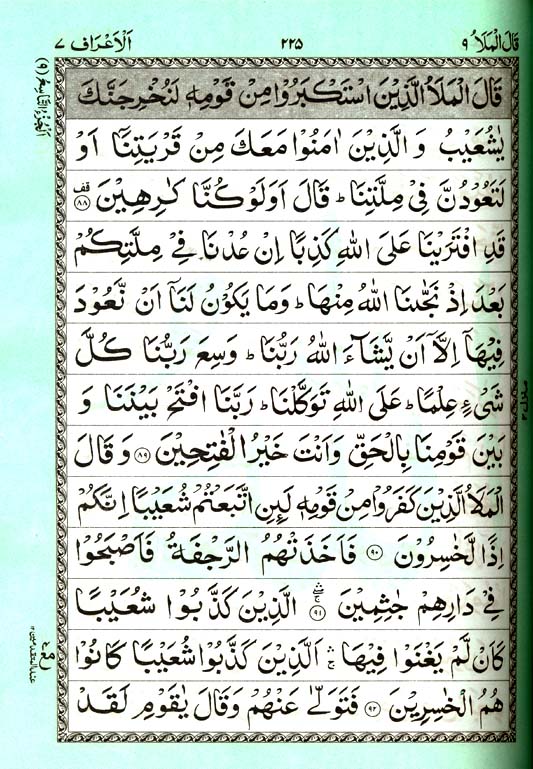 قَالَ الْمَلَاُ ٩
٢٢٥
اَلْاَعْرَاف ٧
اَلْجُزْءُ التَّاسِعُ (٩)
قَالَ الْمَلَاُ الَّذِيْنَ اسْتَكْبَرُوْا مِنْ قَوْمِهٖ لَنُخْرِجَنَّكَ
يٰشُعَيْبُ وَ الَّذِيْنَ اٰمَنُوْا مَعَكَ مِنْ قَرْيَتِنَآ اَوْ
لَتَعُوْدُنَّ فِيْ مِلَّتِنَا ؕ قَالَ اَوَلَوْ كُنَّا كٰرِهِيْنَ ۟قف ٨٨
قَدِ افْتَرَيْنَا عَلَى اللّٰهِ كَذِبًا اِنْ عُدْنَا فِيْ مِلَّتِكُمْ
بَعْدَ اِذْ نَجّٰىنَا اللّٰهُ مِنْهَا ؕ وَمَا يَكُوْنُ لَنَآ اَنْ نَّعُوْدَ
فِيْهَآ اِلَّآ اَنْ يَّشَآءَ اللّٰهُ رَبُّنَا ؕ وَسِعَ رَبُّنَا كُلَّ
شَيْءٍ عِلْمًا ؕ عَلَى اللّٰهِ تَوَكَّلْنَا ؕ رَبَّنَا افْتَحْ بَيْنَنَا وَ
بَيْنَ قَوْمِنَا بِالْحَقِّ وَاَنْتَ خَيْرُ الْفٰتِحِيْنَ ٨٩ وَ قَالَ
الْمَلَاُ الَّذِيْنَ كَفَرُوْا مِنْ قَوْمِهٖ لَىِٕنِ اتَّبَعْتُمْ شُعَيْبًا اِنَّكُمْ
اِذًا لَّخٰسِرُوْنَ ٩٠ فَاَخَذَتْهُمُ الرَّجْفَةُ فَاَصْبَحُوْا
فِيْ دَارِهِمْ جٰثِمِيْنَ ٩١ الَّذِيْنَ كَذَّبُوْا شُعَيْبًا
كَاَنْ لَّمْ يَغْنَوْا فِيْهَا ۛۚ اَلَّذِيْنَ كَذَّبُوْا شُعَيْبًا كَانُوْا
هُمُ الْخٰسِرِيْنَ ٩٢ فَتَوَلّٰى عَنْهُمْ وَقَالَ يٰقَوْمِ لَقَدْ
مع